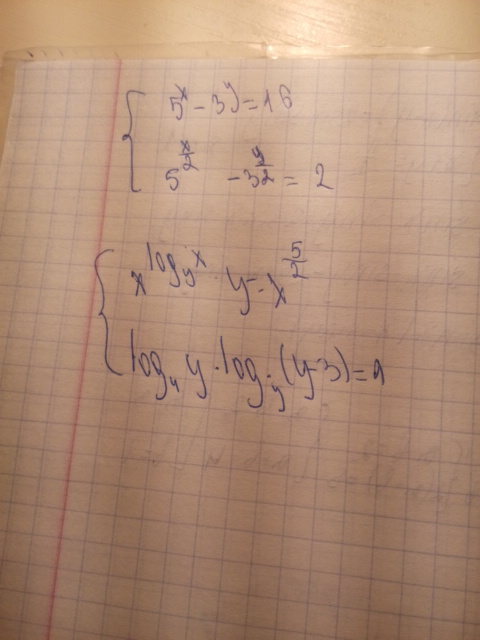 5^x - 3^y = 16
5^{x/2} - 3^{y/2} = 2
x^{log_y x} · y = x^{5/2}
log_4 y · log_y (y-3) =